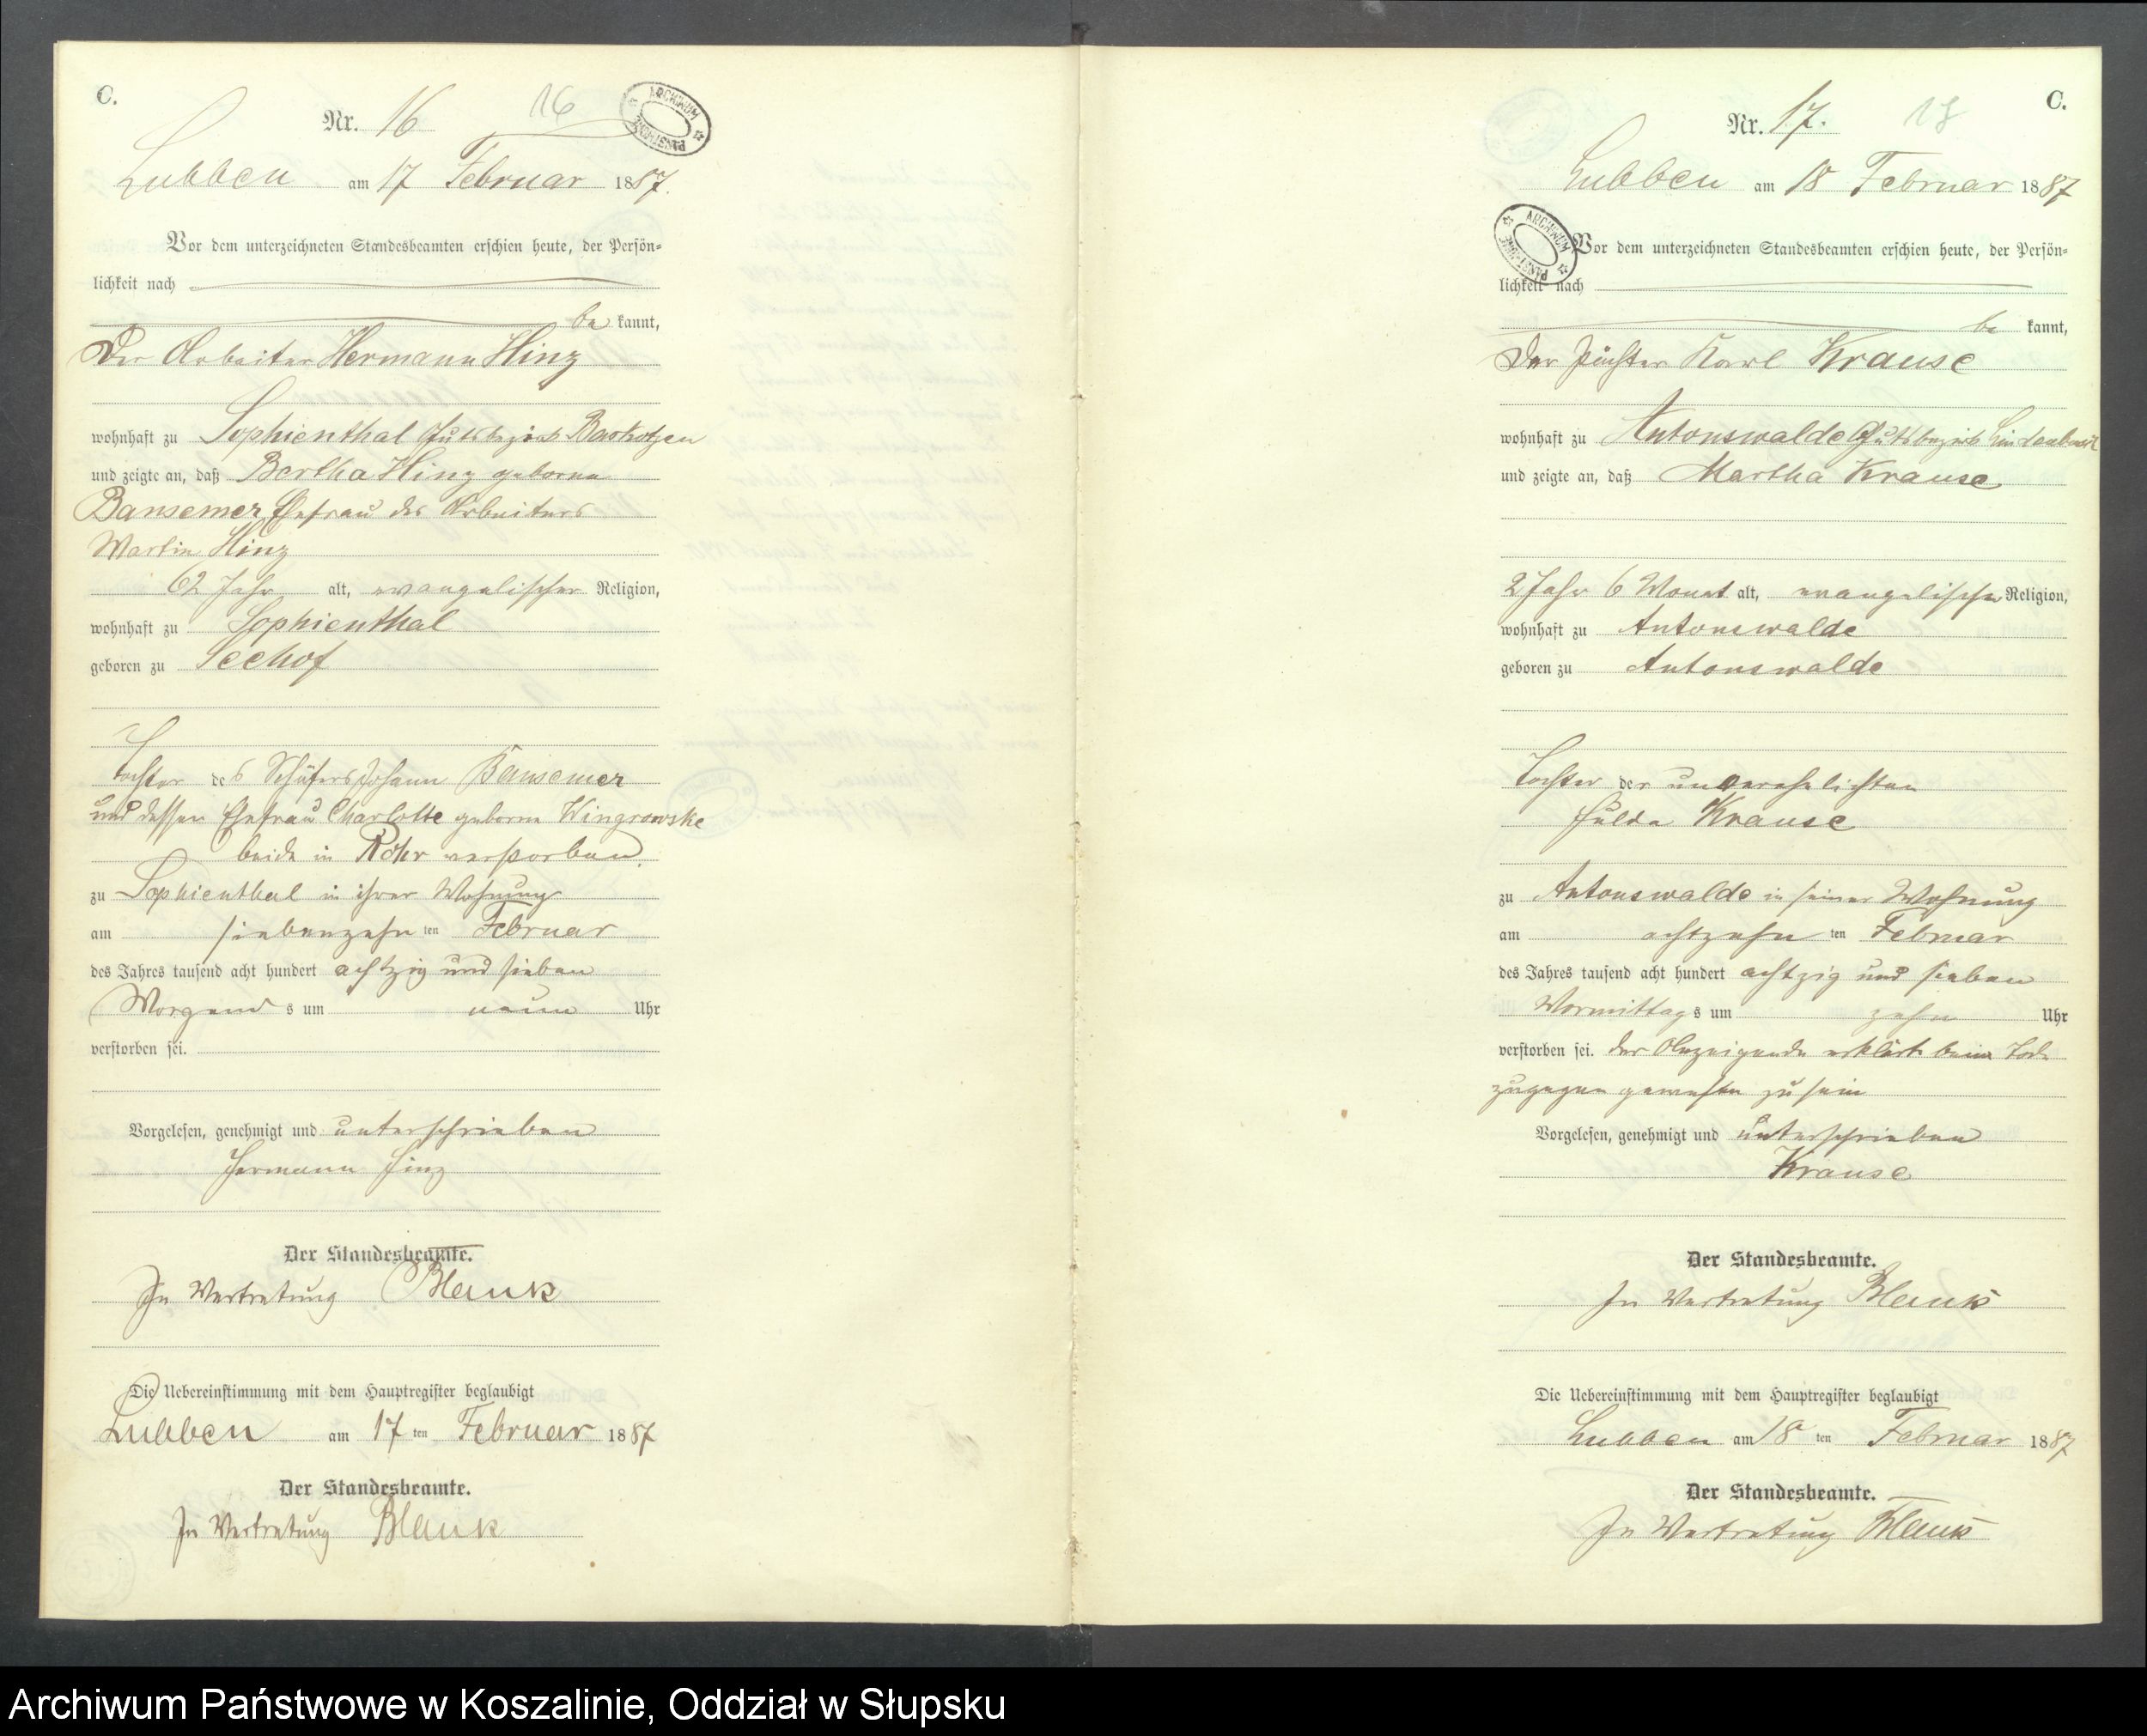 C.
Nr. 16
16
ARCHIWUM PAŃSTWOWE
Lubben am 17 Februar 1887.
Vor dem unterzeichneten Standesbeamten erschien heute, der Persön-
lichkeit nach
be kannt,
Der Arbeiter Hermann Hinz
wohnhaft zu Sophienthal Gutsbezirk
und zeigte an, daß Bertha Hinz geborne
Bansemer Ehefrau des Arbeiters
Martin Hinz
62 Jahr alt, evangelischer Religion,
wohnhaft zu Sophienthal
geboren zu Seehof
Tochter des Schäfers Johann Bansemer
und dessen Ehefrau Charlotte geborne Wingrowske
beide in Röhr verstorben
zu Sophienthal in ihrer Wohnung
am siebenzehn ten Februar
des Jahres tausend acht hundert achtzig und sieben
Morgens um neun Uhr
verstorben sei.
Vorgelesen, genehmigt und unterschrieben
Hermann Hinz
Der Standesbeamte.
In Vertretung Blank
Die Uebereinstimmung mit dem Hauptregister beglaubigt
Lubben am 17 ten Februar 1887
Der Standesbeamte.
In Vertretung Blank
C.
Nr. 17.
17
Lubben am 18 Februar 1887
ARCHIWUM PAŃSTWOWE
Vor dem unterzeichneten Standesbeamten erschien heute, der Persön-
lichkeit nach
be kannt,
Der Pächter Karl Krause
wohnhaft zu Antonswalde Gutsbezirk
und zeigte an, daß Martha Krause
2 Jahr 6 Monat alt, evangelischer Religion,
wohnhaft zu Antonswalde
geboren zu Antonswalde
Tochter der unverehelichten
Hulda Krause
zu Antonswalde in seiner Wohnung
am achtzehn ten Februar
des Jahres tausend acht hundert achtzig und sieben
Vormittags um zehn Uhr
verstorben sei. Der Anzeigende erklärt beim Tode
zugegen gewesen zu sein
Vorgelesen, genehmigt und unterschrieben
Krause
Der Standesbeamte.
In Vertretung Blank
Die Uebereinstimmung mit dem Hauptregister beglaubigt
Lubben am 18 ten Februar 1887
Der Standesbeamte.
In Vertretung Blank
Archiwum Państwowe w Koszalinie, Oddział w Słupsku